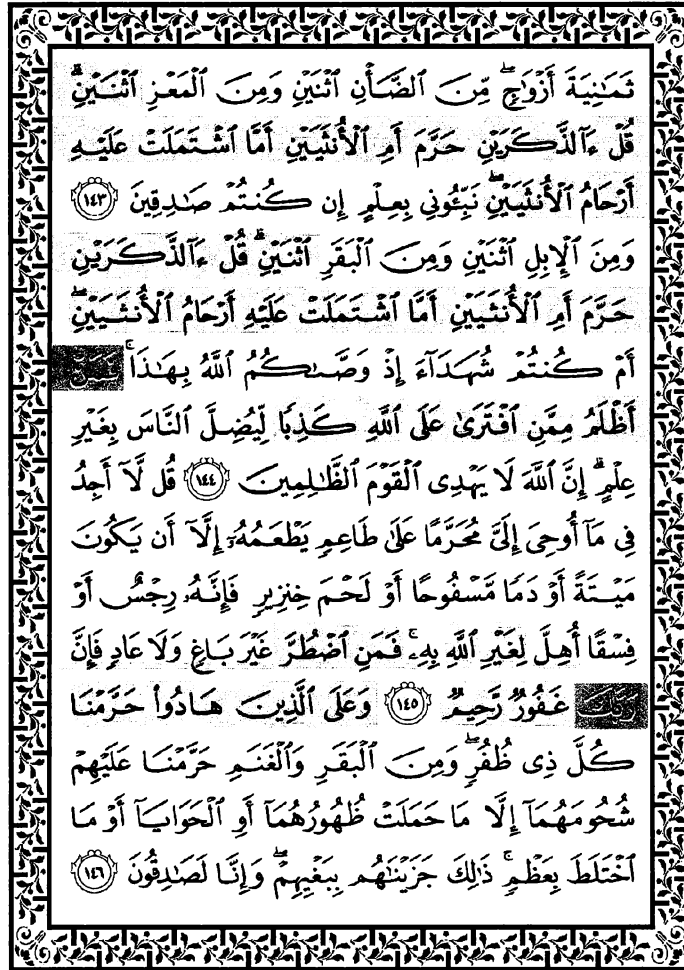 ثَمَٰنِيَةَ أَزْوَٰجٍ ۖ مِّنَ ٱلضَّأْنِ ٱثْنَيْنِ وَمِنَ ٱلْمَعْزِ ٱثْنَيْنِ ۗ
قُلْ ءَآلذَّكَرَيْنِ حَرَّمَ أَمِ ٱلْأُنثَيَيْنِ أَمَّا ٱشْتَمَلَتْ عَلَيْهِ
أَرْحَامُ ٱلْأُنثَيَيْنِ ۖ نَبِّـُٔونِى بِعِلْمٍ إِن كُنتُمْ صَٰدِقِينَ ١٤٣
وَمِنَ ٱلْإِبِلِ ٱثْنَيْنِ وَمِنَ ٱلْبَقَرِ ٱثْنَيْنِ ۗ قُلْ ءَآلذَّكَرَيْنِ
حَرَّمَ أَمِ ٱلْأُنثَيَيْنِ أَمَّا ٱشْتَمَلَتْ عَلَيْهِ أَرْحَامُ ٱلْأُنثَيَيْنِ ۖ
أَمْ كُنتُمْ شُهَدَآءَ إِذْ وَصَّىٰكُمُ ٱللَّهُ بِهَٰذَا ۚ فَمَنْ
أَظْلَمُ مِمَّنِ ٱفْتَرَىٰ عَلَى ٱللَّهِ كَذِبًا لِّيُضِلَّ ٱلنَّاسَ بِغَيْرِ
عِلْمٍ ۗ إِنَّ ٱللَّهَ لَا يَهْدِى ٱلْقَوْمَ ٱلظَّٰلِمِينَ ١٤٤ قُل لَّآ أَجِدُ
فِى مَآ أُوحِىَ إِلَىَّ مُحَرَّمًا عَلَىٰ طَاعِمٍ يَطْعَمُهُۥٓ إِلَّآ أَن يَكُونَ
مَيْتَةً أَوْ دَمًا مَّسْفُوحًا أَوْ لَحْمَ خِنزِيرٍ فَإِنَّهُۥ رِجْسٌ أَوْ
فِسْقًا أُهِلَّ لِغَيْرِ ٱللَّهِ بِهِۦ ۚ فَمَنِ ٱضْطُرَّ غَيْرَ بَاغٍ وَلَا عَادٍ فَإِنَّ
رَبَّكَ غَفُورٌ رَّحِيمٌ ١٤٥ وَعَلَى ٱلَّذِينَ هَادُوا۟ حَرَّمْنَا
كُلَّ ذِى ظُفُرٍ ۖ وَمِنَ ٱلْبَقَرِ وَٱلْغَنَمِ حَرَّمْنَا عَلَيْهِمْ
شُحُومَهُمَآ إِلَّا مَا حَمَلَتْ ظُهُورُهُمَآ أَوِ ٱلْحَوَايَآ أَوْ مَا
ٱخْتَلَطَ بِعَظْمٍ ۚ ذَٰلِكَ جَزَيْنَٰهُم بِبَغْيِهِمْ ۖ وَإِنَّا لَصَٰدِقُونَ ١٤٦